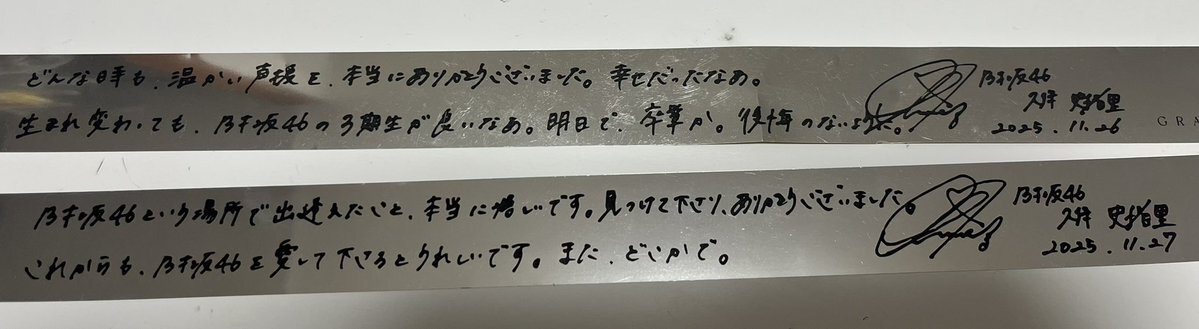 どんな時も、温かい声援を、本当にありがとうございました。幸せだったなあ。
生まれ変わっても、乃木坂46の3期生が良いなあ。明日で、卒業か。後悔のないように。
乃木坂46
久保 史緒里
2025.11.26
GRA
乃木坂46という場所で出逢えたこと、本当に嬉しいです。見つけて下さり、ありがとうございました。
これからも、乃木坂46を愛して下さるとうれしいです。また、どこかで。
乃木坂46
久保 史緒里
2025.11.27